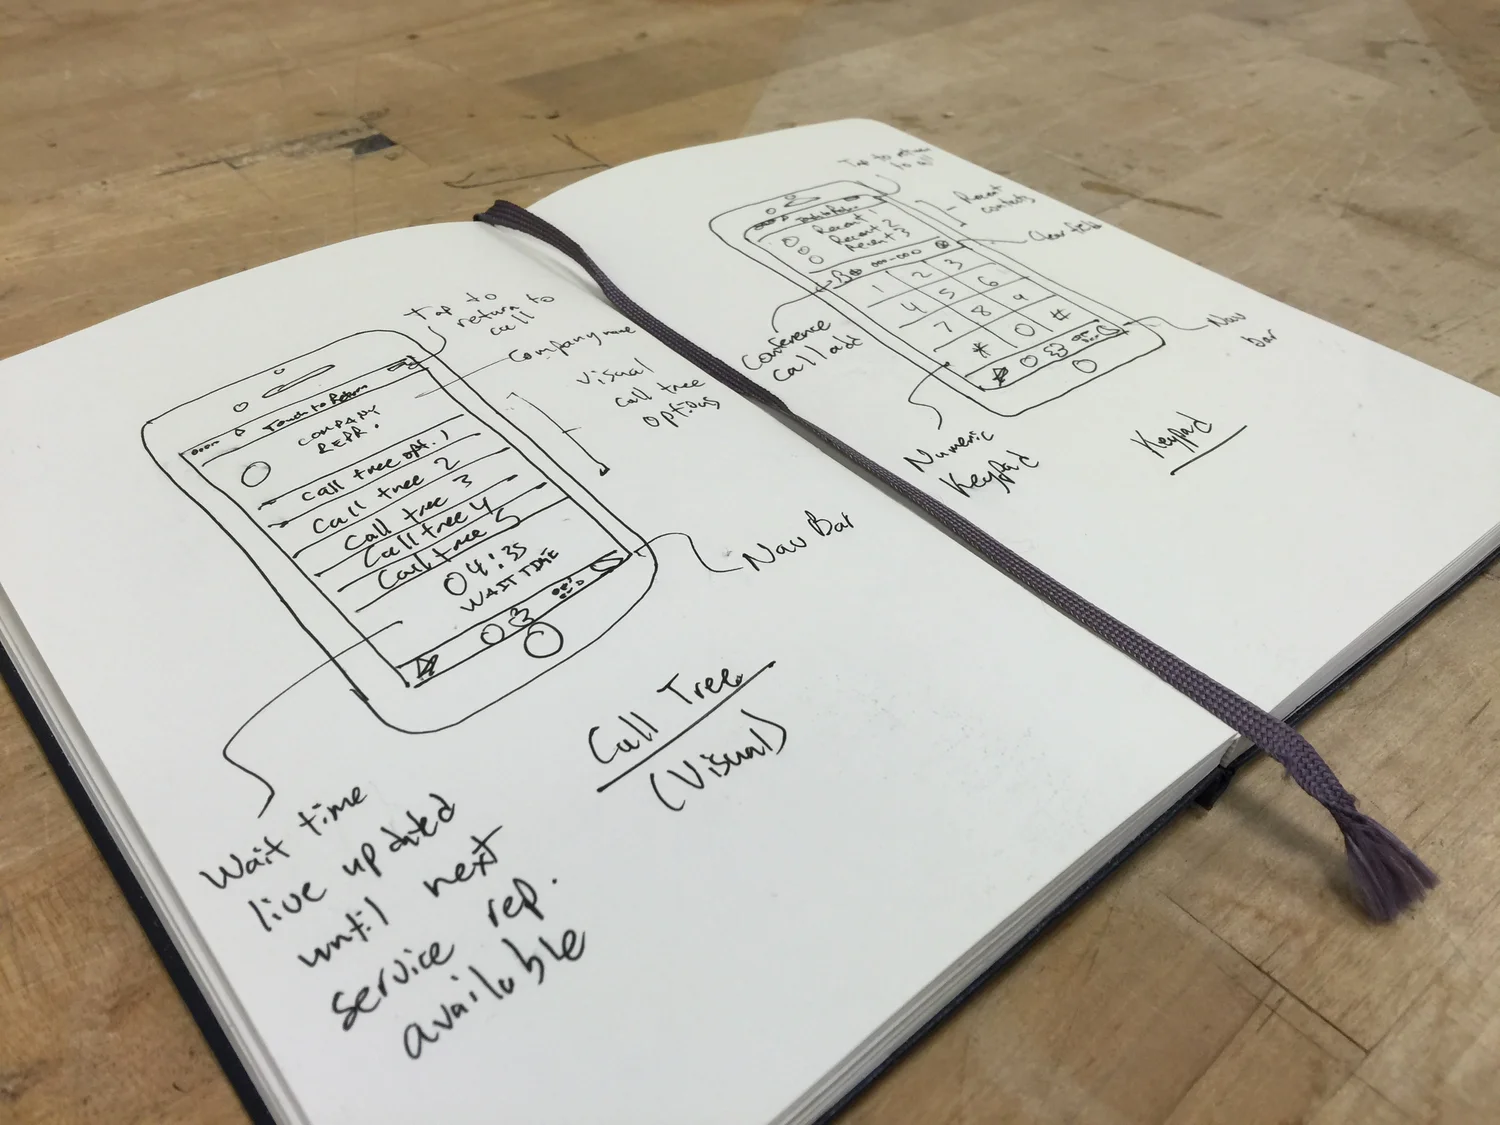 Tap to
return to
call
Company name
Visual
call tree
options
Touch to Return
COMPANY
REPR.
call tree opt. 1
Call tree 2
Call tree 3
Call tree 4
Call tree 5
04:35
WAIT TIME
Nav Bar
Call Tree
(Visual)
Wait time
live updated
until next
service rep.
available
Tap to return
to call
Recent
contacts
Recent 1
Recent 2
Recent 3
Clear field
1 2 3
4 5 6
7 8 9
* 0 #
Conference
call add
Nav
bar
Numeric
Keypad
Keypad